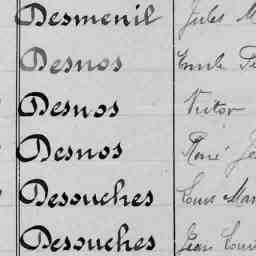 Desmenil Jules M
Desnos Emile
Desnos Victor
Desnos René
Desouches Louis Mar
Desouches Jean Loui